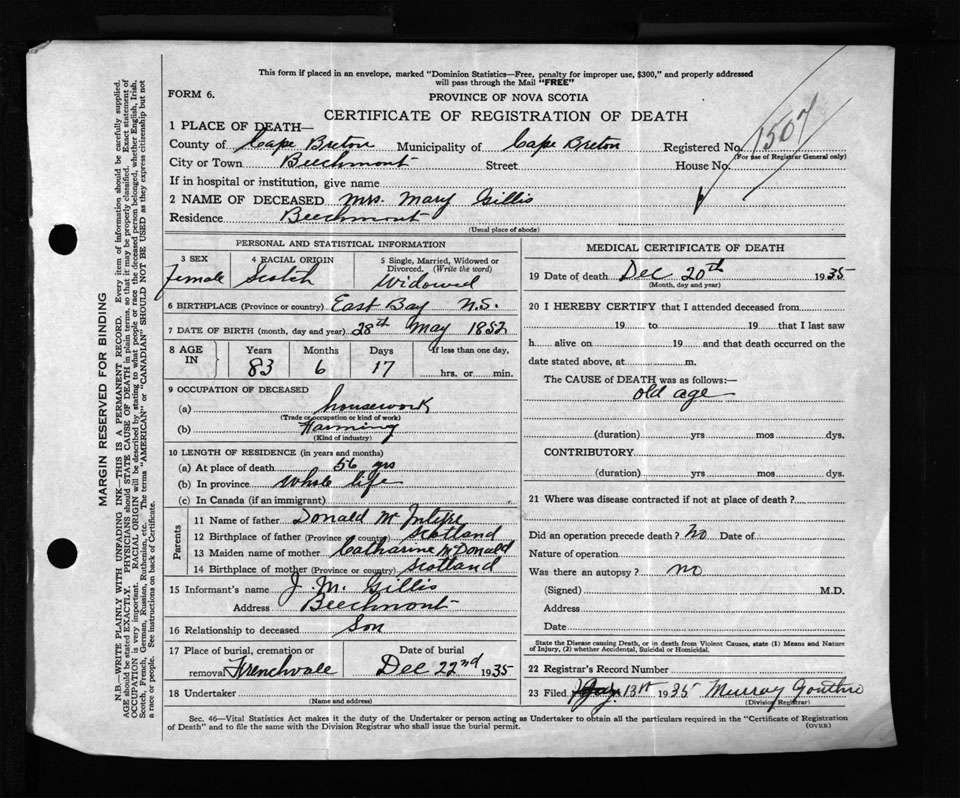 This form if placed in an envelope, marked "Dominion Statistics—Free, penalty for improper use, $300," and properly addressed
will pass through the Mail "FREE"
FORM 6.
PROVINCE OF NOVA SCOTIA
CERTIFICATE OF REGISTRATION OF DEATH
1507
1 PLACE OF DEATH—
County of Cape Breton Municipality of Cape Breton Registered No.
(For use of Registrar General only)
City or Town Beechmont Street House No.
If in hospital or institution, give name
2 NAME OF DECEASED Mrs. Mary Gillis
Residence Beechmont
(Usual place of abode)
PERSONAL AND STATISTICAL INFORMATION
3 SEX 4 RACIAL ORIGIN 5 Single, Married, Widowed or
Divorced. (Write the word)
female Scotch Widowed
6 BIRTHPLACE (Province or country) East Bay N.S.
7 DATE OF BIRTH (month, day and year) 28th May 1852
8 AGE IN Years Months Days If less than one day,
83 6 17 hrs. or min.
9 OCCUPATION OF DECEASED
(a) housework
(Trade or occupation or kind of work)
(b) Farming
(Kind of industry)
10 LENGTH OF RESIDENCE (in years and months)
(a) At place of death 56 yrs
(b) In province Whole life
(c) In Canada (if an immigrant)
Parents
11 Name of father Donald Mc Intyre
12 Birthplace of father (Province or country) Scotland
13 Maiden name of mother Catharine McDonald
14 Birthplace of mother (Province or country) Scotland
15 Informant's name J. M. Gillis
Address Beechmont
16 Relationship to deceased Son
17 Place of burial, cremation or Date of burial
removal Frenchvale Dec 22nd 1935
18 Undertaker
(Name and address)
MEDICAL CERTIFICATE OF DEATH
19 Date of death Dec 20th 1935
(Month, day and year)
20 I HEREBY CERTIFY that I attended deceased from
19 to 19 that I last saw
h alive on 19 and that death occurred on the
date stated above, at m.
The CAUSE of DEATH was as follows:—
old age
(duration) yrs mos dys.
CONTRIBUTORY
(duration) yrs mos dys.
21 Where was disease contracted if not at place of death ?
Did an operation precede death ? No Date of
Nature of operation
Was there an autopsy ? no
(Signed) M.D.
Address
Date
State the Disease causing Death, or in death from Violent Causes, state (1) Means and Nature
of Injury, (2) whether Accidental, Suicidal or Homicidal.
22 Registrar's Record Number
23 Filed 1935 Murray
(Division Registrar)
Sec. 46—Vital Statistics Act makes it the duty of the Undertaker or person acting as Undertaker to obtain all the particulars required in the "Certificate of Registration
of Death" and to file the same with the Division Registrar who shall issue the burial permit. (OVER)
MARGIN RESERVED FOR BINDING
N.B.—WRITE PLAINLY WITH UNFADING INK—THIS IS A PERMANENT RECORD. Every item of information should be carefully supplied.
AGE should be stated EXACTLY. PHYSICIANS should STATE CAUSE OF DEATH in plain terms, so that it may be properly classified. Exact statement of
OCCUPATION is very important. RACIAL ORIGIN will be described by stating to what people or race the deceased person belonged, whether English, Irish,
Scotch, French, German, Russian, Ruthenian, etc. The terms "AMERICAN" or "CANADIAN" SHOULD NOT BE USED as they express citizenship but not
a race or people. See instructions on back of Certificate.